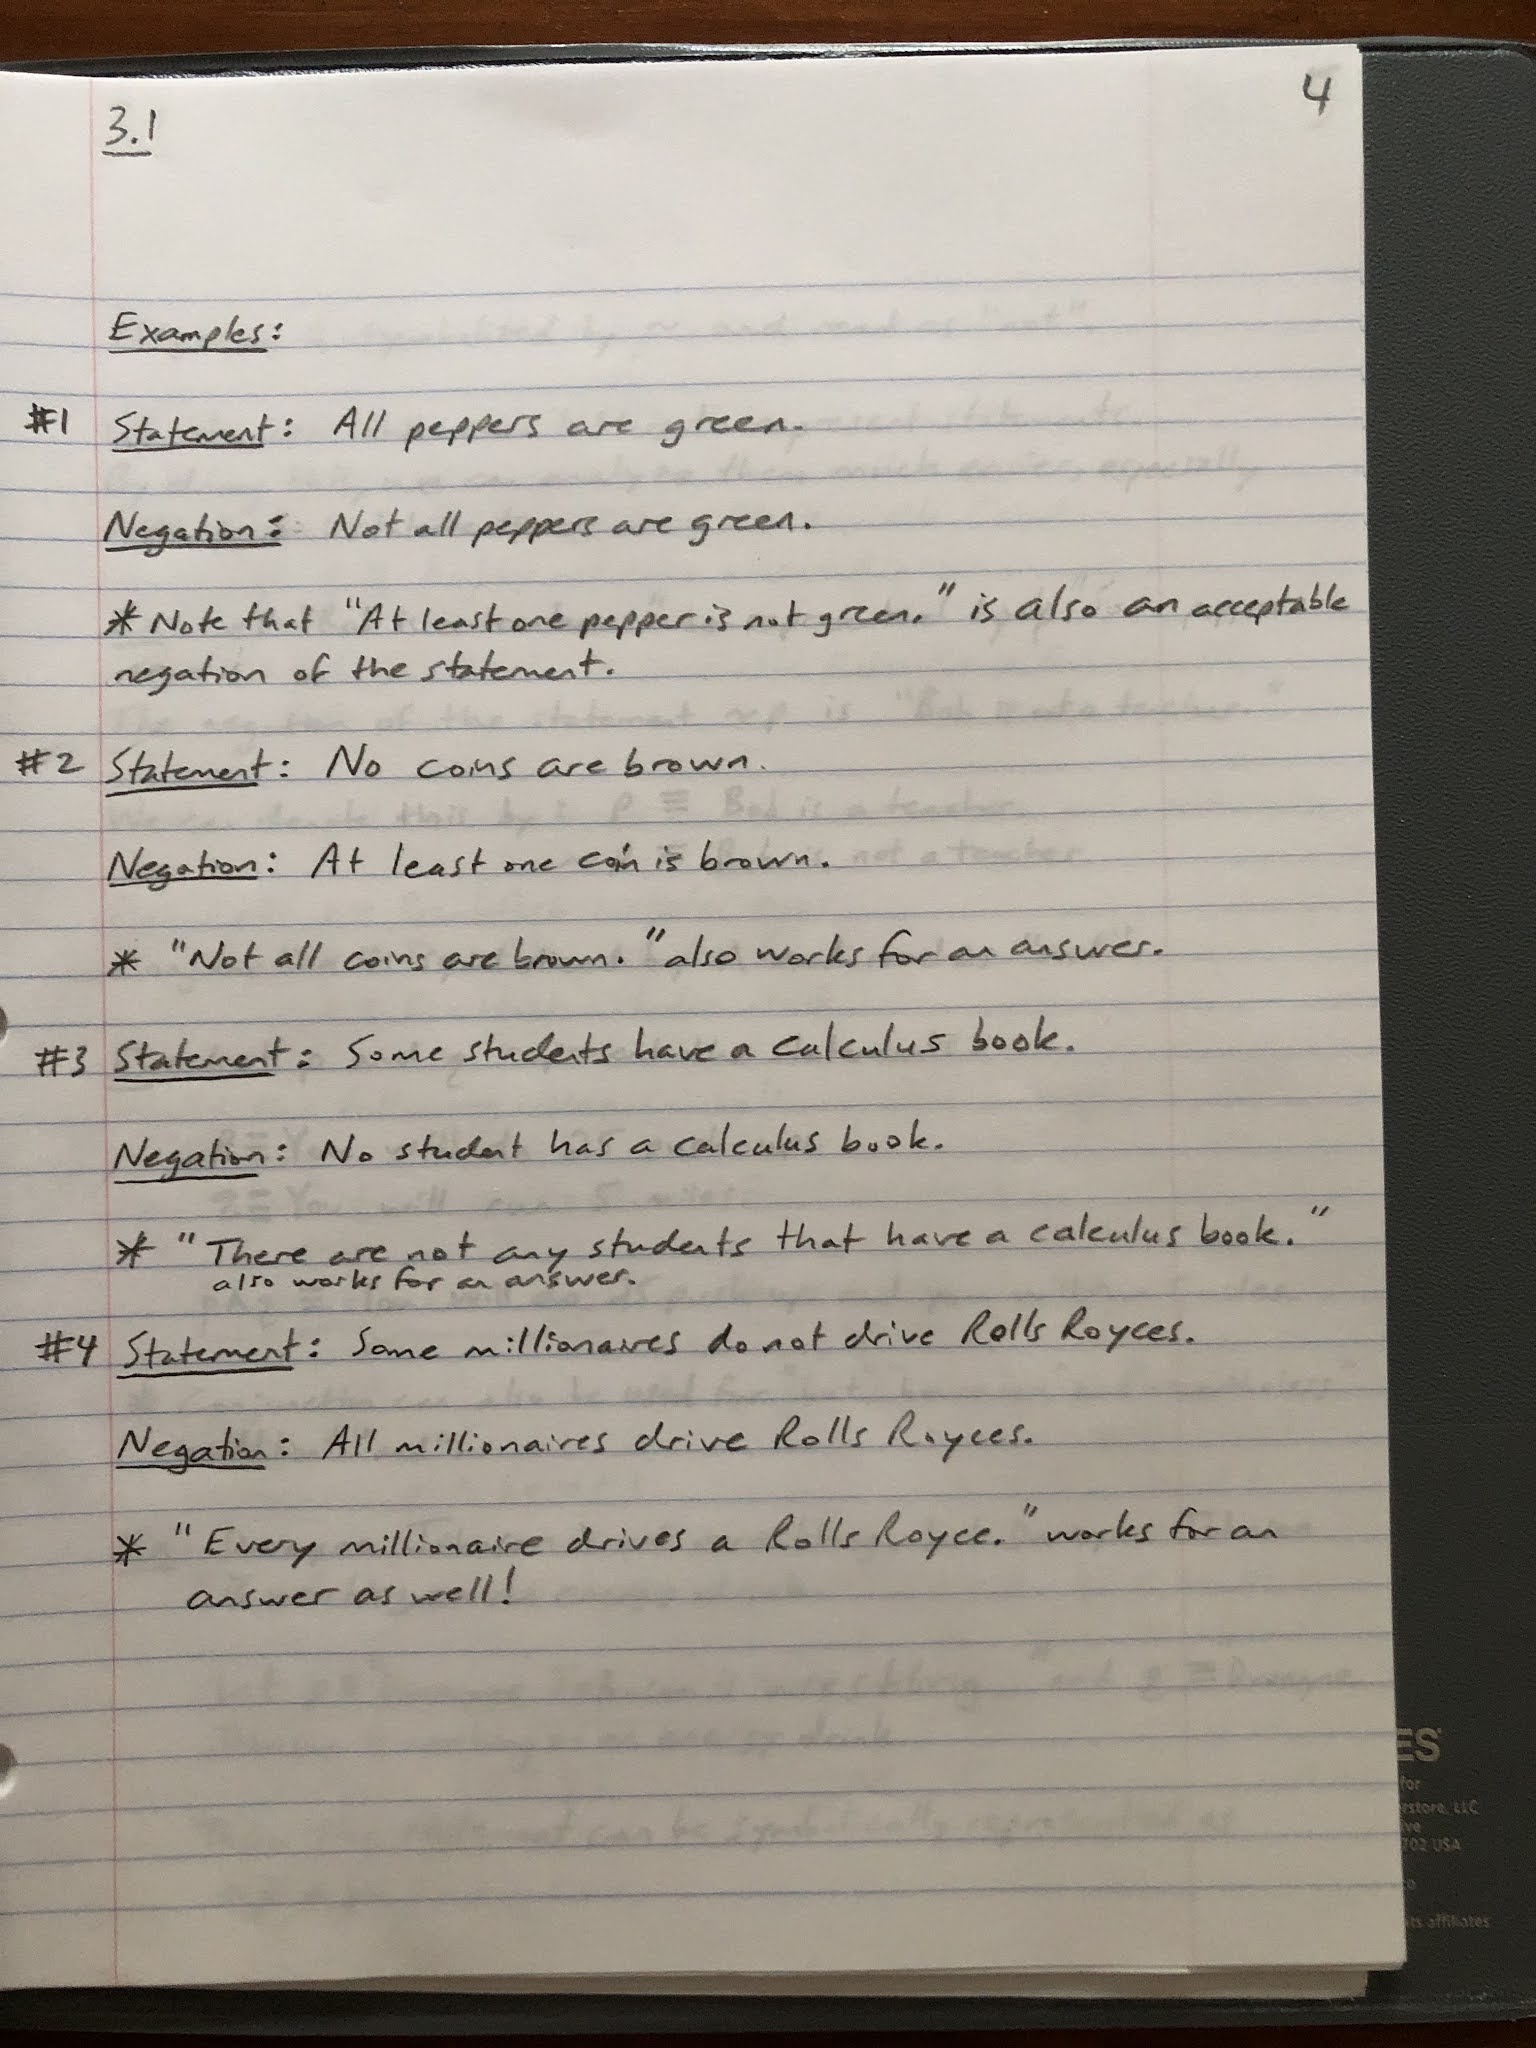 3.1
4
Examples:
#1 Statement: All peppers are green.
Negation: Not all peppers are green.
* Note that "At least one pepper is not green." is also an acceptable
negation of the statement.
#2 Statement: No coins are brown.
Negation: At least one coin is brown.
* "Not all coins are brown." also works for an answer.
#3 Statement: Some students have a calculus book.
Negation: No student has a calculus book.
* "There are not any students that have a calculus book."
also works for an answer.
#4 Statement: Some millionaires do not drive Rolls Royces.
Negation: All millionaires drive Rolls Royces.
* "Every millionaire drives a Rolls Royce." works for an
answer as well!
ES
for
rstore, LLC
ive
702 USA
its affiliates